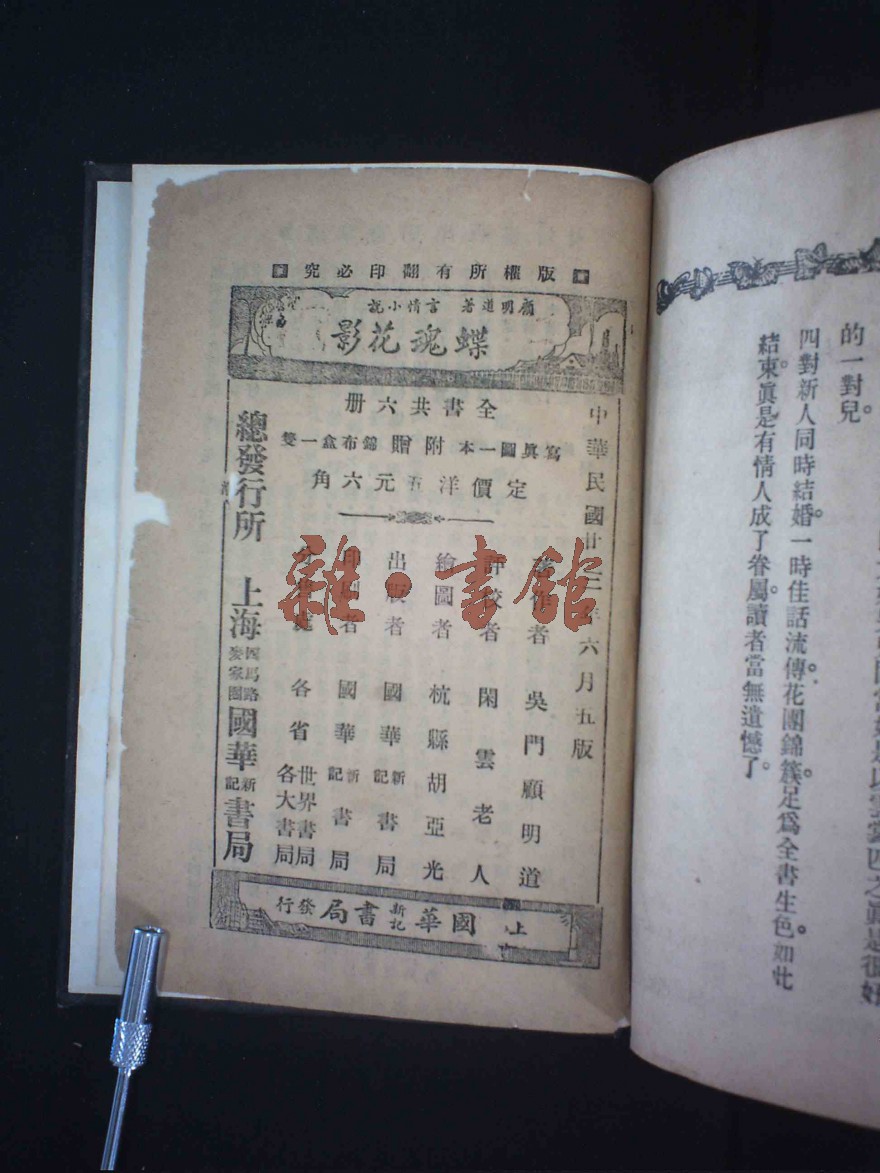 的一對兒。
四對新人同時結婚。一時佳話流傳。花團錦簇。足爲全書生色。如此
結束。眞是有情人成了眷屬。讀者當無遺憾了。
版權所有翻印必究
顧明道著 言情小說
蝶魂花影
中華民國廿三年六月五版
全書共六册
寫眞圖一本附贈錦布盒一雙
定價洋五元六角
著作者 吳門顧明道
評校者 閑雲老人
繪圖者 杭縣胡亞光
出版者 國華新記書局
印刷者 國華新記書局
分售處 各省世界書局各大書局
總發行所 上海四馬路麥家圈國華新記書局
上 國華新記書局發行
雜·書館